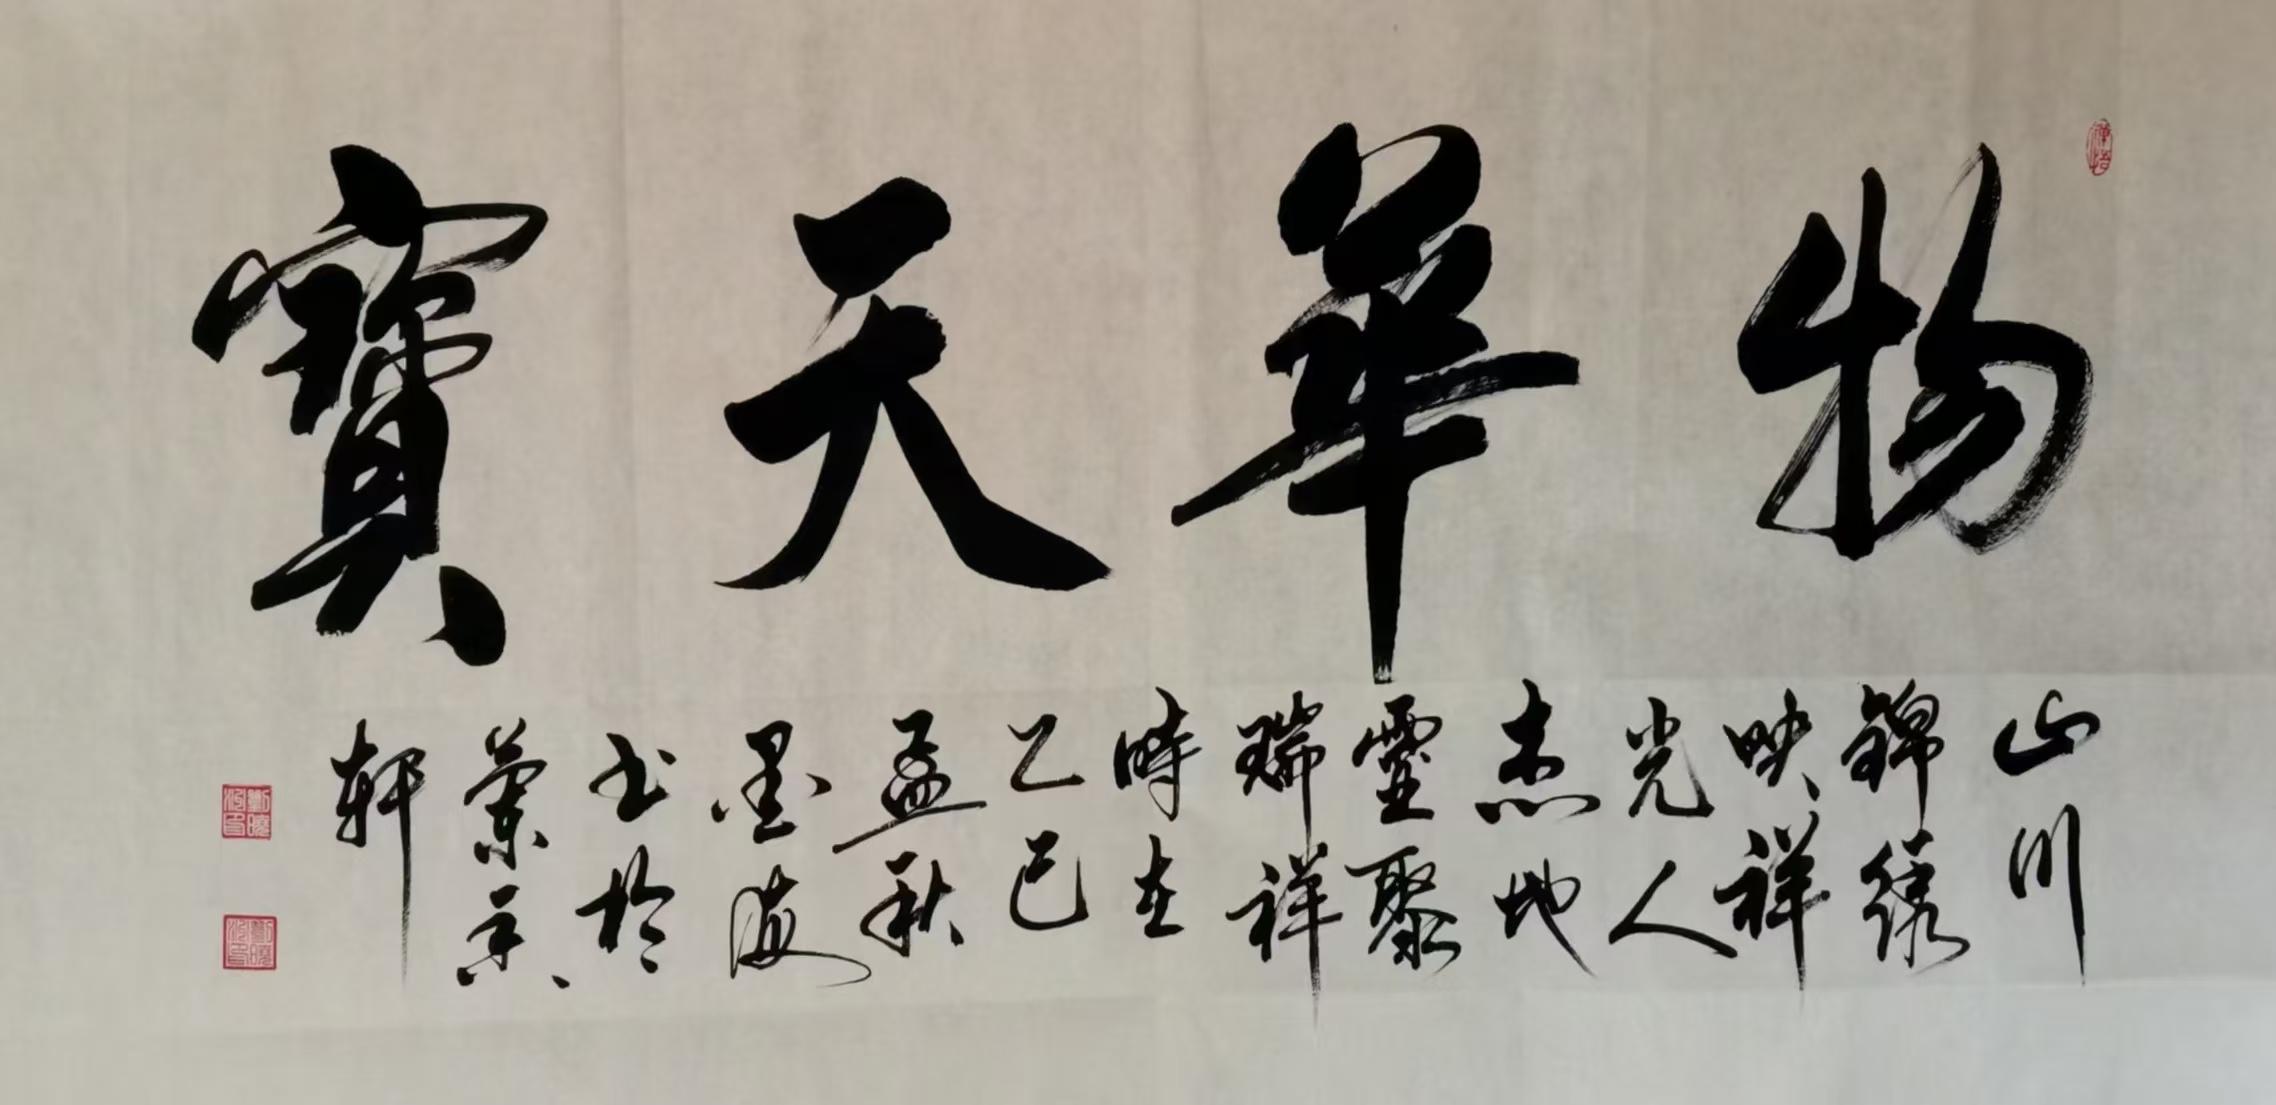 物華天寶
山川
錦绣
映祥
光人
杰地
靈聚
瑞祥
時在
乙巳
孟秋
墨海
书於
蘭香
軒